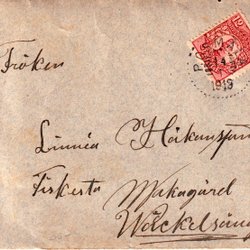 Fröken
Linnéa Håkansson
Fiskesta Makagård
Wäckelsång
1919
10